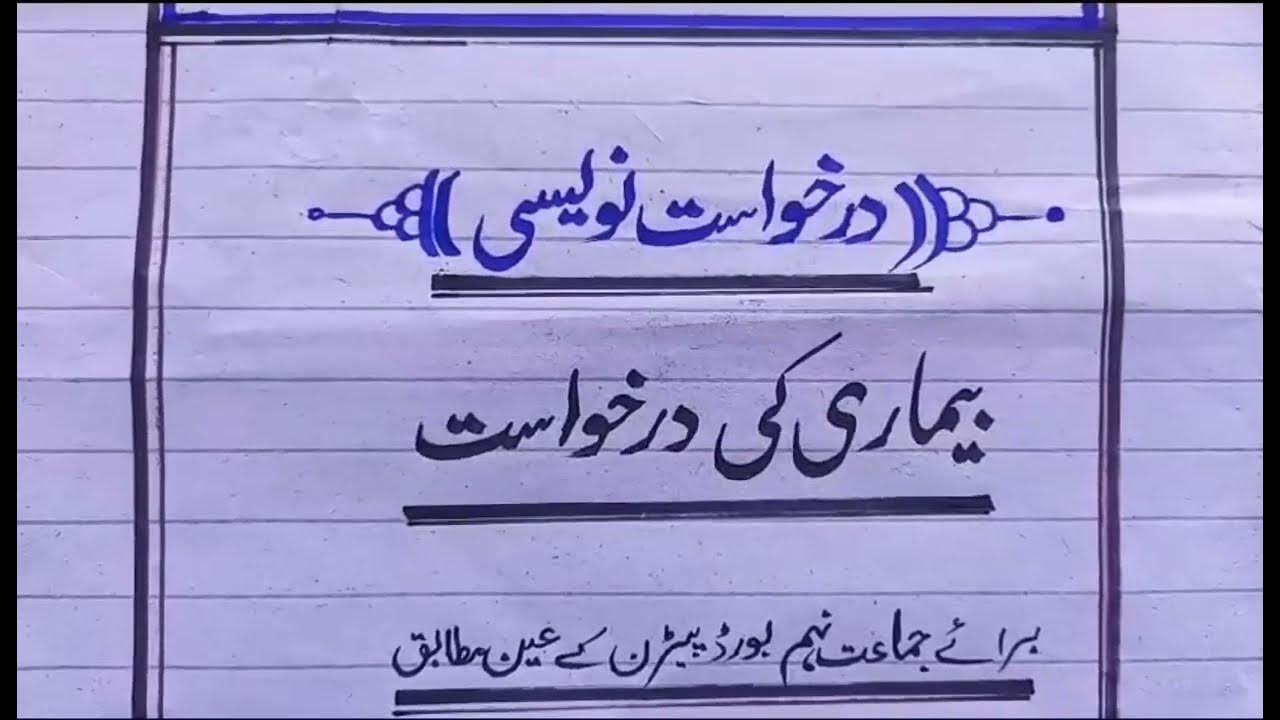 ((درخواست نویسی))
بیماری کی درخواست
برائے جماعت نہم بورڈ پیٹرن کے عین مطابق